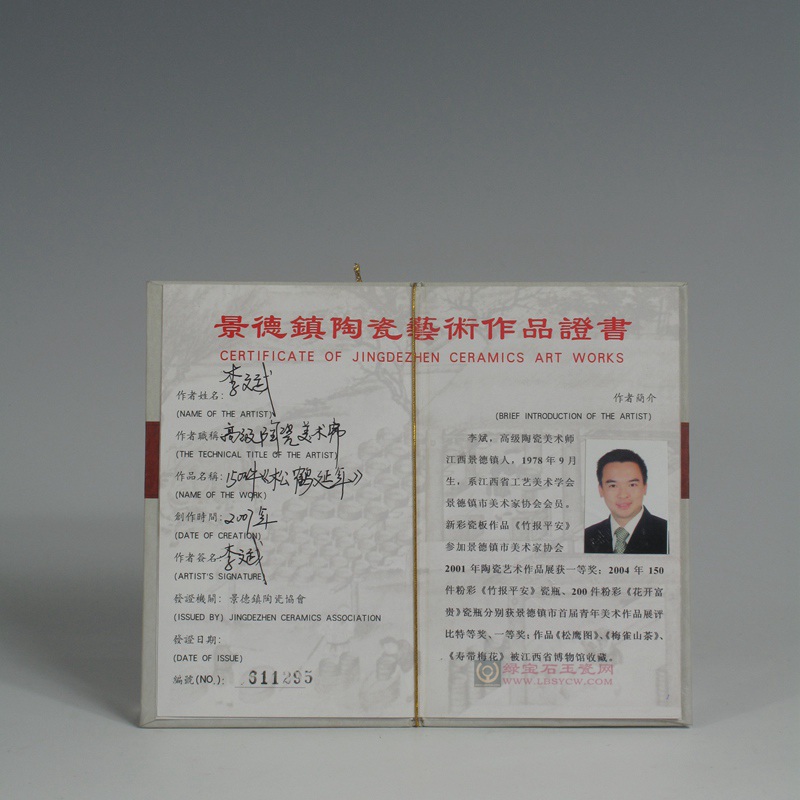 景德鎮陶瓷藝術作品證書
CERTIFICATE OF JINGDEZHEN CERAMICS ART WORKS
作者姓名: 李文斌
(NAME OF THE ARTIST)
作者職稱: 高级陶瓷美术师
(THE TECHNICAL TITLE OF THE ARTIST)
作品名稱: 150件《松鹤延年》
(NAME OF THE WORK)
創作時間: 2007年
(DATE OF CREATION)
作者簽名
(ARTIST'S SIGNATURE)
發證機關: 景德鎮陶瓷協會
(ISSUED BY) JINGDEZHEN CERAMICS ASSOCIATION
發證日期:
(DATE OF ISSUE)
編號(NO.): 611295
作者簡介
(BRIEF INTRODUCTION OF THE ARTIST)
李斌,高级陶瓷美术师
江西景德镇人,1978年9月
生,系江西省工艺美术学会
景德镇市美术家协会会员。
新彩瓷板作品《竹报平安》
参加景德镇市美术家协会
2001年陶瓷艺术作品展获一等奖;2004年150
件粉彩《竹报平安》瓷瓶、200件粉彩《花开富
贵》瓷瓶分别获景德镇市首届青年美术作品展评
比特等奖、一等奖;作品《松鹰图》、《梅雀山茶》、
《寿带梅花》被江西省博物馆收藏。
绿宝石玉瓷网
WWW.LBSYCW.COM